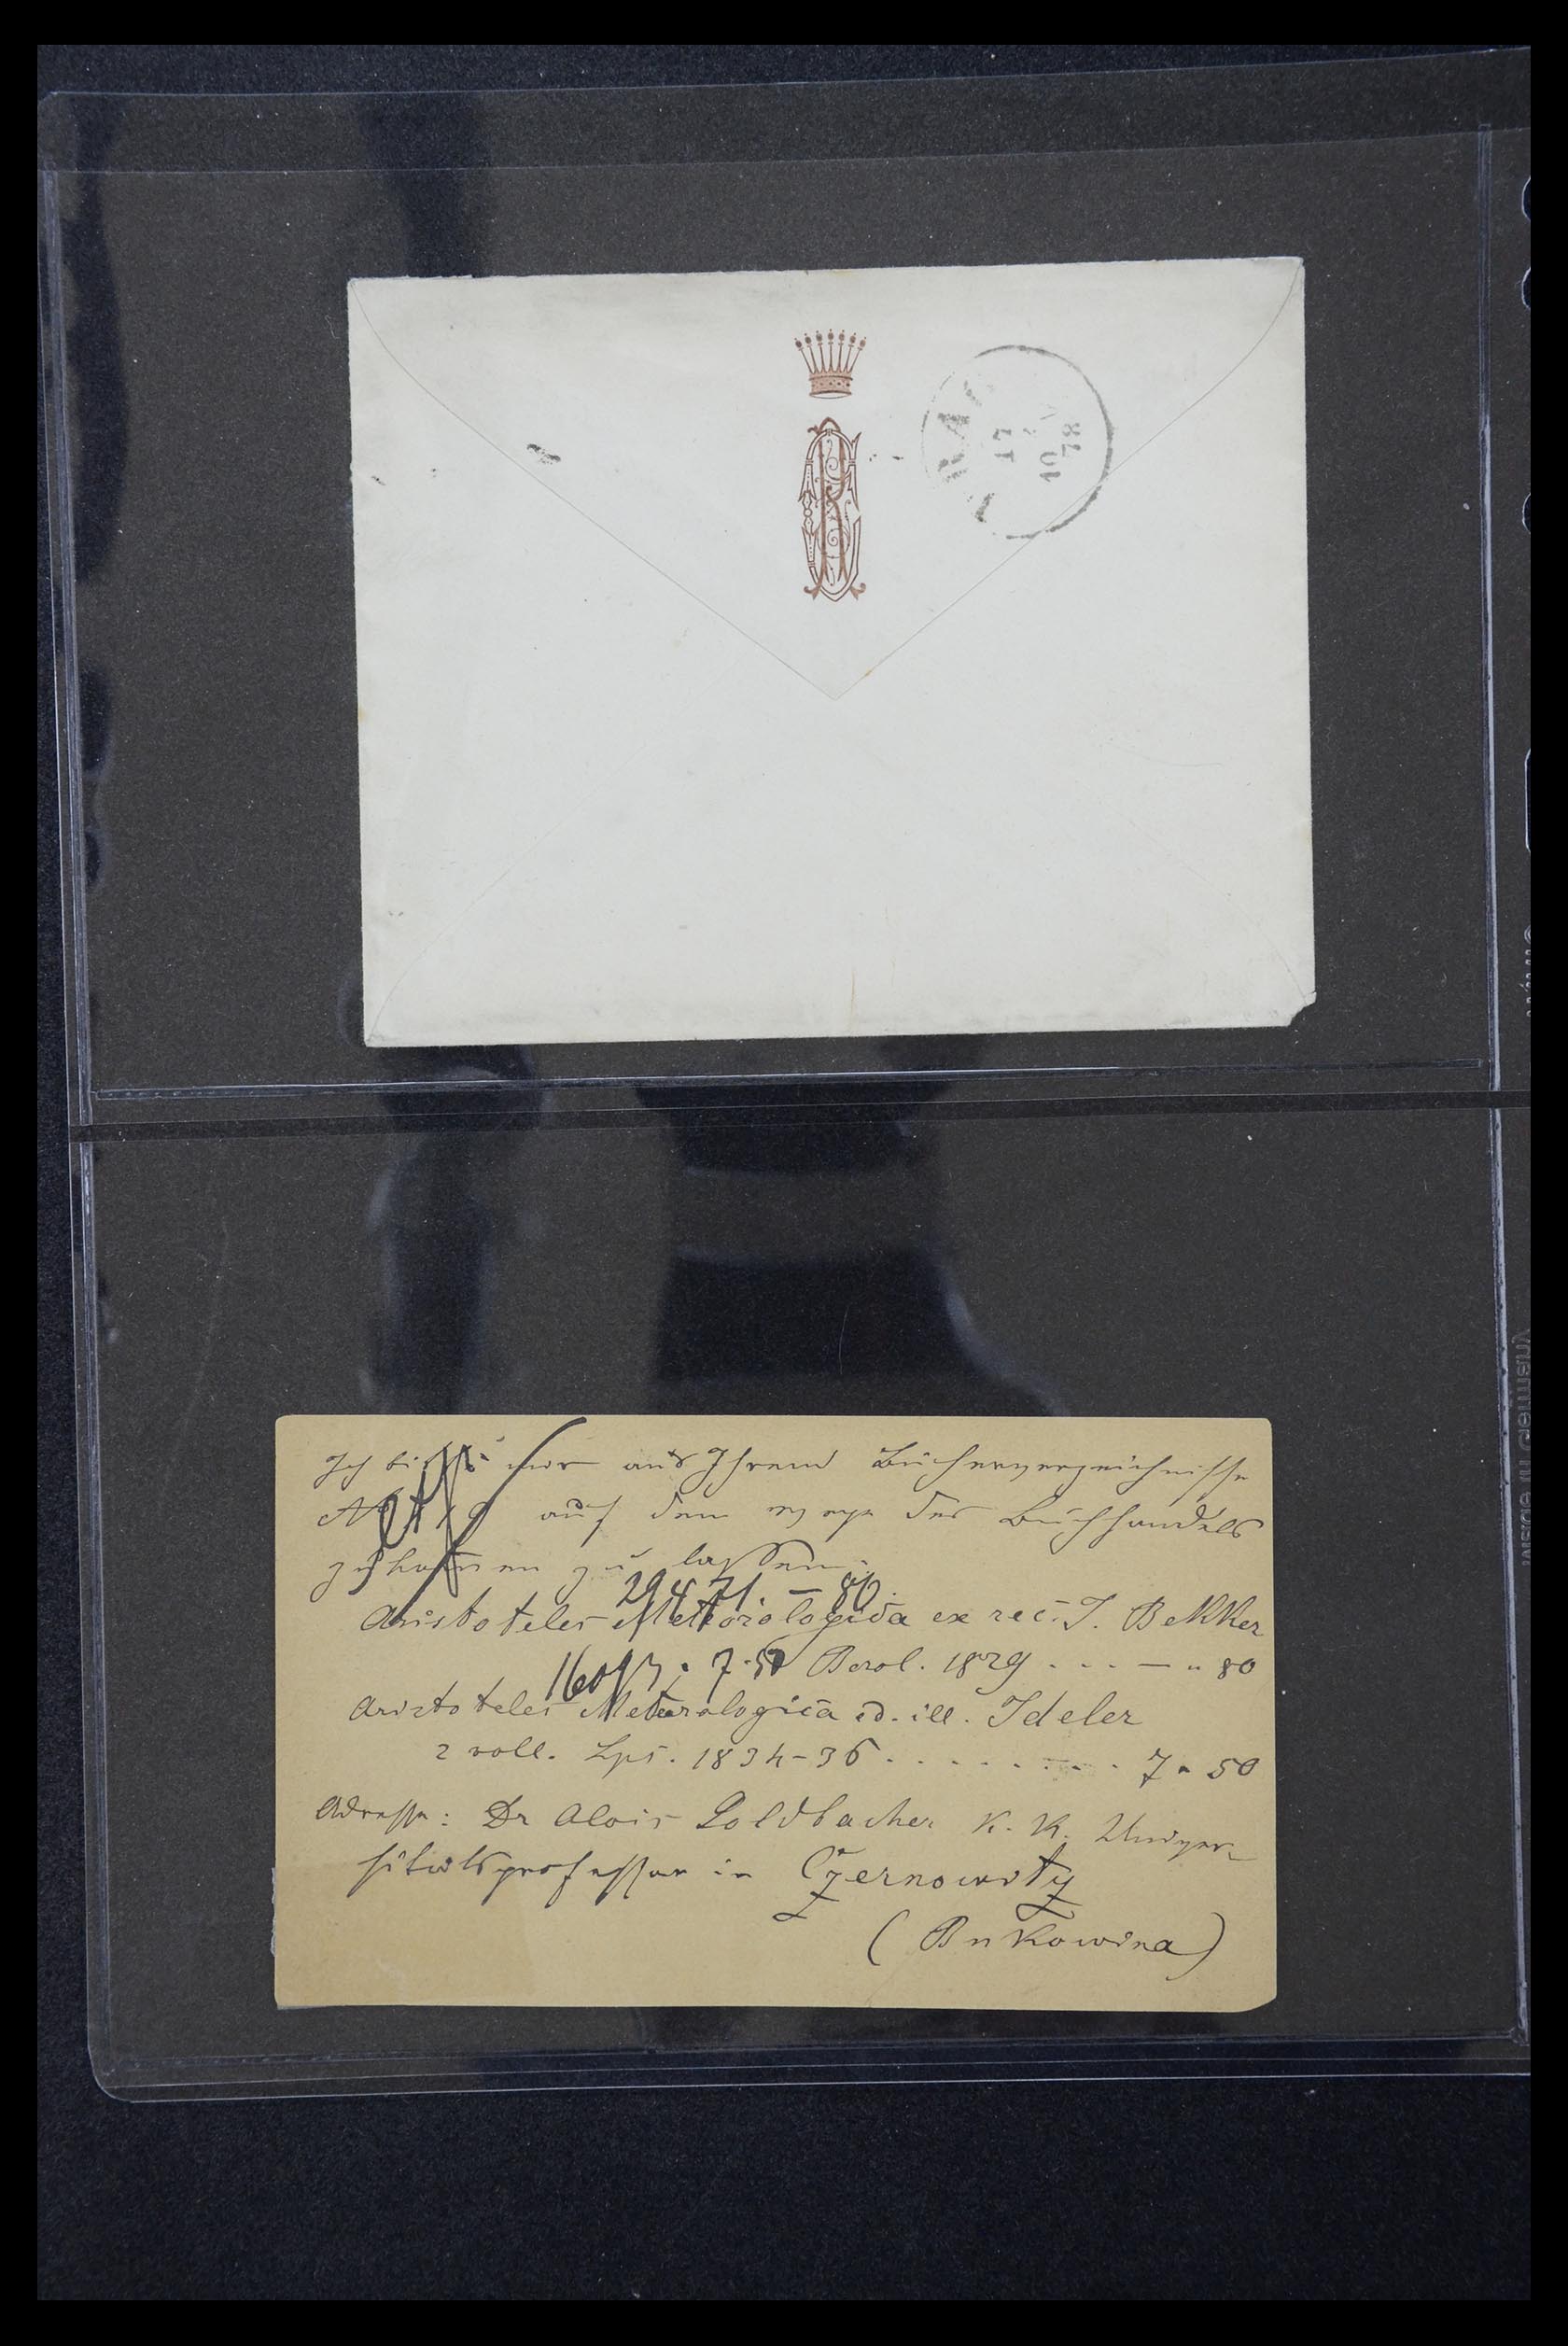 10
78
Ich bitte mir aus Ihrem Bücherverzeichnisse
auf dem Wege des Buchhandels
zukommen zu lassen:
Aristoteles Meteorologica ex rec. I. Bekker
Berol. 1829 . . . — " 80
Aristoteles Meteorologica ed. ill. Ideler
2 voll. Lps. 1834-36 . . . . . . . . . 7 " 50
Adresse: Dr Alois Goldbacher k. k. Univer-
sitätsprofessor in Czernowitz
(Bukowina)
29471. — 80.
7.50